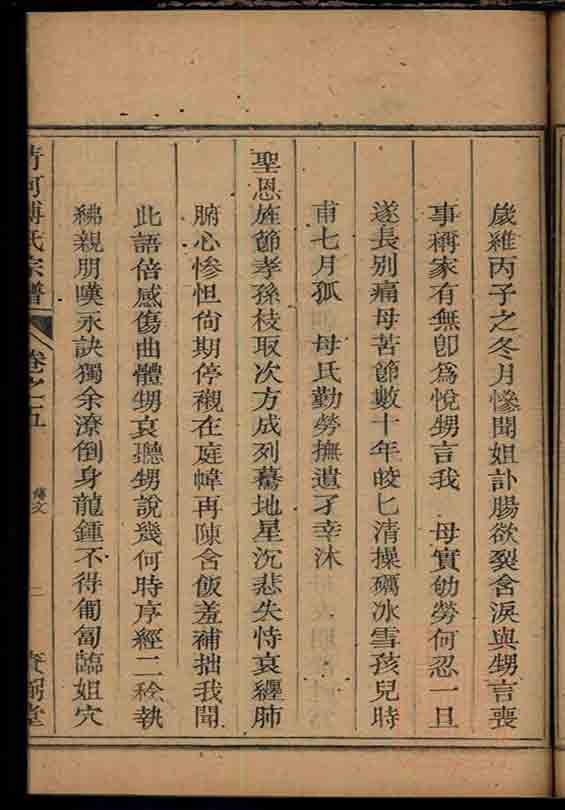 歲維丙子之冬月慘聞姐訃腸欲裂含淚與甥言喪
事稱家有無卽爲悅甥言我 母實劬勞何忍一旦
遂長別痛母苦節數十年皎匕清操礪冰雪孩兒時
甫七月孤 母氏勤勞撫遺孑幸沐
聖恩旌節孝孫枝取次方成列驀地星沉悲失恃哀纏肺
腑心慘怛尙期停櫬在庭幃再陳含飯羞補拙我聞
此語倍感傷曲體甥哀聽甥說幾何時序經二稔執
紼親朋嘆永訣獨余潦倒身龍鍾不得匍匐臨姐穴
清河傅氏宗譜 卷之五 傳文 二